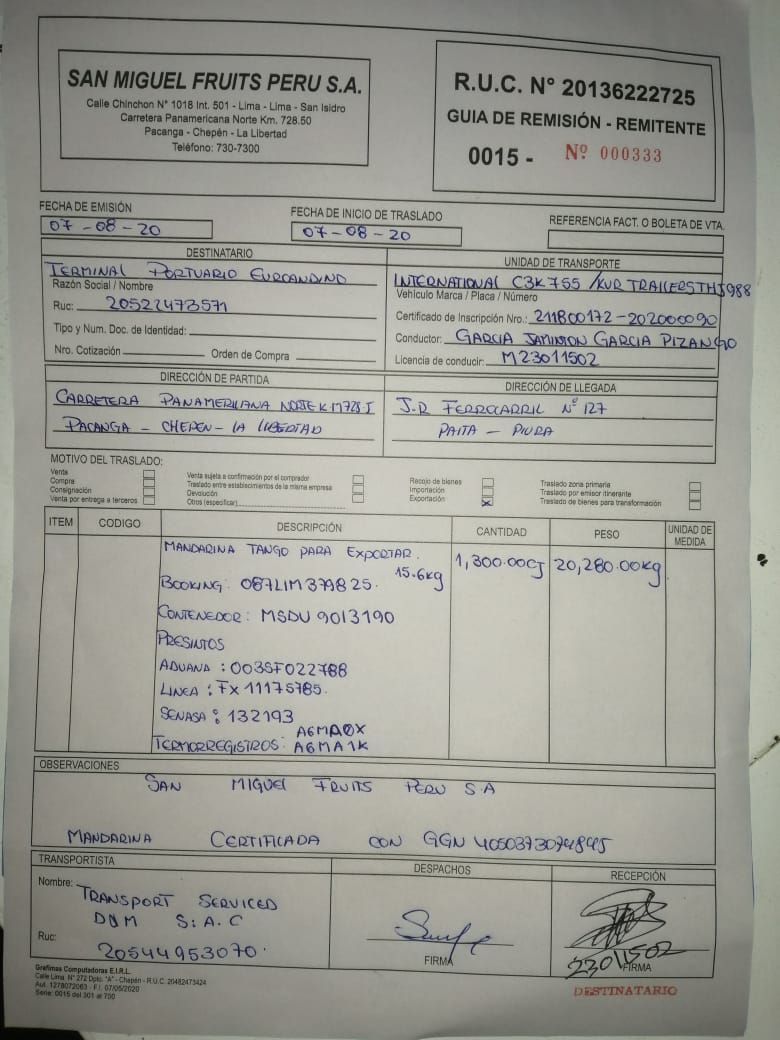 SAN MIGUEL FRUITS PERU S.A.
Calle Chinchon N° 1018 Int. 501 - Lima - Lima - San Isidro
Carretera Panamericana Norte Km. 728.50
Pacanga - Chepén - La Libertad
Teléfono: 730-7300
R.U.C. N° 20136222725
GUIA DE REMISIÓN - REMITENTE
0015 - Nº 000333
FECHA DE EMISIÓN
07-08-20
FECHA DE INICIO DE TRASLADO
07-08-20
REFERENCIA FACT. O BOLETA DE VTA.
DESTINATARIO
TERMINAL PORTUARIO EUROANDINO
Razón Social / Nombre
Ruc: 20522473571
Tipo y Num. Doc. de Identidad:
Nro. Cotización Orden de Compra
UNIDAD DE TRANSPORTE
INTERNATIONAL C3K755 /KUR TRAILERS THJ988
Vehículo Marca / Placa / Número
Certificado de Inscripción Nro.: 211800172-202000090
Conductor: GARCIA JAMINTON GARCIA PIZANGO
Licencia de conducir: M23011502
DIRECCIÓN DE PARTIDA
CARRETERA PANAMERICANA NORTE KM728.5
PACANGA - CHEPEN - LA LIBERTAD
DIRECCIÓN DE LLEGADA
J.R FERROCARRIL Nº 127
PAITA - PIURA
MOTIVO DEL TRASLADO:
Venta
Compra
Consignación
Venta por entrega a terceros
Venta sujeta a confirmación por el comprador
Traslado entre establecimientos de la misma empresa
Devolución
Otros (especificar)
Recojo de bienes
Importación
Exportación X
Traslado zona primaria
Traslado por emisor itinerante
Traslado de bienes para transformación
ITEM CODIGO DESCRIPCIÓN CANTIDAD PESO UNIDAD DE MEDIDA
MANDARINA TANGO PARA EXPORTAR. 1,300.00CJ 20,280.00kg
15.6kg
BOOKING: 087LIM379825.
CONTENEDOR: MSDU 9013190
PRESINTOS
ADUANA : 003SF022788
LINEA : FX 11175785.
SENASA : 132193
A6MA0X
TERMORREGISTROS: A6MA1K
OBSERVACIONES
SAN MIGUEL FRUITS PERU S.A
MANDARINA CERTIFICADA CON GGN 4050373074845
TRANSPORTISTA
Nombre: TRANSPORT SERVICES
D&M S.A.C
Ruc: 20544953070.
DESPACHOS
FIRMA
RECEPCIÓN
23011502
FIRMA
Grafimas Computadoras E.I.R.L.
Calle Lima N° 272 Dpto. "A" - Chepén - R.U.C. 20482473424
Aut. 1278072063 - F.I. 07/05/2020
Serie: 0015 del 301 al 700
DESTINATARIO